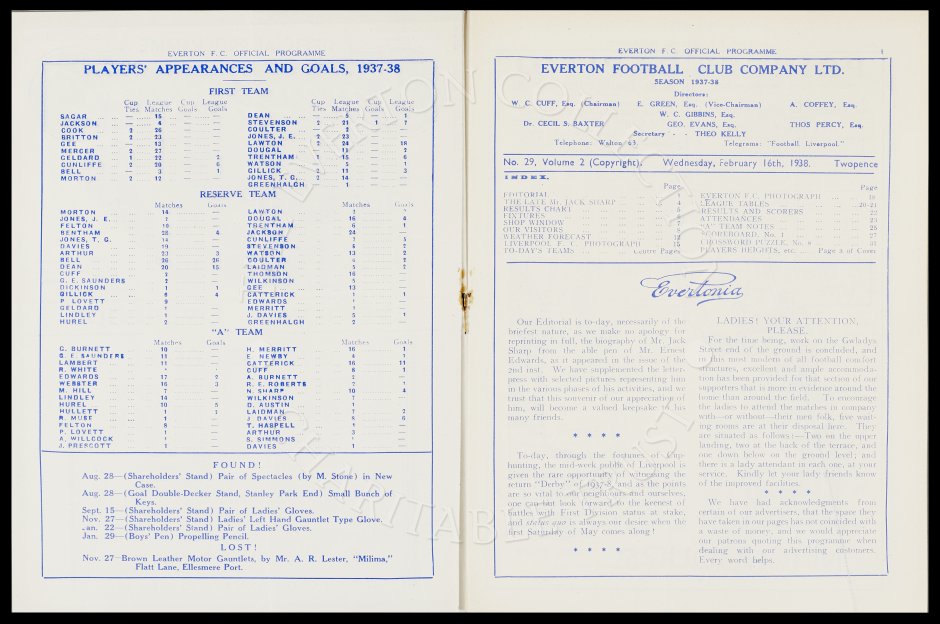 EVERTON F.C. OFFICIAL PROGRAMME
PLAYERS' APPEARANCES AND GOALS, 1937-38
FIRST TEAM
Cup Ties League Matches Cup Goals League Goals
SAGAR ... — 15 — —
JACKSON ... — 4 — —
COOK ... 2 26 — —
BRITTON ... 2 23 — —
GEE ... — 13 — —
MERCER ... 2 27 — —
GELDARD ... 1 22 — 2
CUNLIFFE ... 2 20 — 6
BELL ... — 3 — 1
MORTON ... 2 12 — —
Cup Ties League Matches Cup Goals League Goals
DEAN ... — 5 — 1
STEVENSON 2 21 1 7
COULTER ... — 2 — —
JONES, J. E. ... 2 23 — —
LAWTON ... 2 24 — 18
DOUGAL ... — 11 — 2
TRENTHAM ... 1 15 — 6
WATSON ... — 5 — 1
GILLICK ... 2 11 — 3
JONES, T. G. 2 14 — —
GREENHALGH — 1 — —
RESERVE TEAM
Matches Goals
MORTON ... 14 —
JONES, J. E.
FELTON ... 10 —
BENTHAM ... 28 4
JONES, T. G. ... 14 —
DAVIES ... 5 —
ARTHUR ... 23 3
BELL ... 26 26
DEAN ... 20 15
CUFF ... 2 —
G. E. SAUNDERS ... 2 —
DICKINSON ... 1 1
GILLICK ... 6 4
P. LOVETT ... 9 —
GELDARD
MERRITT
LINDLEY
HUREL ... 2 —
Matches Goals
LAWTON
DOUGAL ... 16 4
TRENTHAM ... 6 1
JACKSON ... 24 —
CUNLIFFE
STEVENSON
WATSON ... 13 2
COULTER
LAIDMAN ... 5 2
THOMSON ... 16 —
WILKINSON ... 5 —
GEE ... 13 —
CATTERICK ... 1 1
EDWARDS
J. DAVIES ... 5 1
GREENHALGH ... 2 —
"A" TEAM
Matches Goals
G. BURNETT ... 10 —
G. E. SAUNDERS ... 11 —
LAMBERT ... 11 —
R. WHITE
EDWARDS ... 17 2
WEBSTER ... 16 3
M. HILL ... 7 —
LINDLEY ... 14 —
HUREL ... 10 5
HULLETT ... 1 1
R. MUSE
FELTON ... 8 —
P. LOVETT ... 1 —
A. WILLCOCK ... 1 —
J. PRESCOTT
Matches Goals
H. MERRITT ... 16 1
E. NEWBY ... 4 1
CATTERICK ... 16 11
CUFF
A. BURNETT
R. E. ROBERTS
N. SHARP ... 10 4
WILKINSON
D. AUSTIN
LAIDMAN ... 7 2
J. DAVIES
T. HASPELL ... 1 —
ARTHUR
S. SIMMONS ... 1 —
DAVIES
FOUND!
Aug. 28—(Shareholders' Stand) Pair of Spectacles (by M. Stone) in New
Case.
Aug. 28—(Goal Double-Decker Stand, Stanley Park End) Small Bunch of
Keys.
Sept. 15—(Shareholders' Stand) Pair of Ladies' Gloves.
Nov. 27—(Shareholders' Stand) Ladies' Left Hand Gauntlet Type Glove.
Jan. 22—(Shareholders' Stand) Pair of Ladies' Gloves.
Jan. 29—(Boys' Pen) Propelling Pencil.
LOST!
Nov. 27—Brown Leather Motor Gauntlets, by Mr. A. R. Lester, "Milima,"
Flatt Lane, Ellesmere Port.
EVERTON F.C. OFFICIAL PROGRAMME. 1
EVERTON FOOTBALL CLUB COMPANY LTD.
SEASON 1937-38
Directors:
W. C. CUFF, Esq. (Chairman) E. GREEN, Esq. (Vice-Chairman) A. COFFEY, Esq.
W. C. GIBBINS, Esq.
Dr. CECIL S. BAXTER GEO. EVANS, Esq. THOS PERCY, Esq.
Secretary - THEO KELLY
Telephone: Walton 63 Telegrams: "Football Liverpool."
No. 29, Volume 2 (Copyright). Wednesday, February 16th, 1938. Twopence
INDEX.
Page
EDITORIAL
THE LATE Mr. JACK SHARP ... 4
RESULTS CHART
FIXTURES
SHOP WINDOW
OUR VISITORS
WEATHER FORECAST
LIVERPOOL F.C. PHOTOGRAPH ... 15
TO-DAY'S TEAMS ... Centre Pages
Page
EVERTON F.C. PHOTOGRAPH ... 18
LEAGUE TABLES ... 20-21
RESULTS AND SCORERS ... 22
ATTENDANCES ... 23
"A" TEAM NOTES ... 25
SCOREBOARD, No. 1 ... 27
CROSSWORD PUZZLE, No. 8 ... 31
PLAYERS HEIGHTS, etc. Page 3 of Cover
Evertonia
Our Editorial is to-day, necessarily of the
briefest nature, as we make no apology for
reprinting in full, the biography of Mr. Jack
Sharp from the able pen of Mr. Ernest
Edwards, as it appeared in the issue of the
2nd inst. We have supplemented the letter-
press with selected pictures representing him
in the various phases of his activities, and we
trust that this souvenir of our appreciation of
him, will become a valued keepsake of his
many friends.
* * * *
To-day, through the fortunes of Cup-
hunting, the mid-week public of Liverpool is
given the rare opportunity of witnessing the
return "Derby" of 1937-8, and as the points
are so vital to our neighbours and ourselves,
one can but look forward to the keenest of
battles with First Division status at stake,
and status quo is always our desire when the
first Saturday of May comes along!
* * * *
LADIES! YOUR ATTENTION,
PLEASE.
For the time being, work on the Gwladys
Street end of the ground is concluded, and
in this most modern of all football comfort
structures, excellent and ample accommoda-
tion has been provided for that section of our
supporters that is more in evidence around the
home than around the field. To encourage
the ladies to attend the matches in company
with—or without—their men folk, five wait-
ing rooms are at their disposal here. They
are situated as follows:—Two on the upper
landing, two at the back of the terrace, and
one down below on the ground level; and
there is a lady attendant in each one, at your
service. Kindly let your lady friends know
of the improved facilities.
* * * *
We have had acknowledgments from
certain of our advertisers, that the space they
have taken in our pages has not coincided with
a waste of money, and we would appreciate
our patrons quoting this programme when
dealing with our advertising customers.
Every word helps.